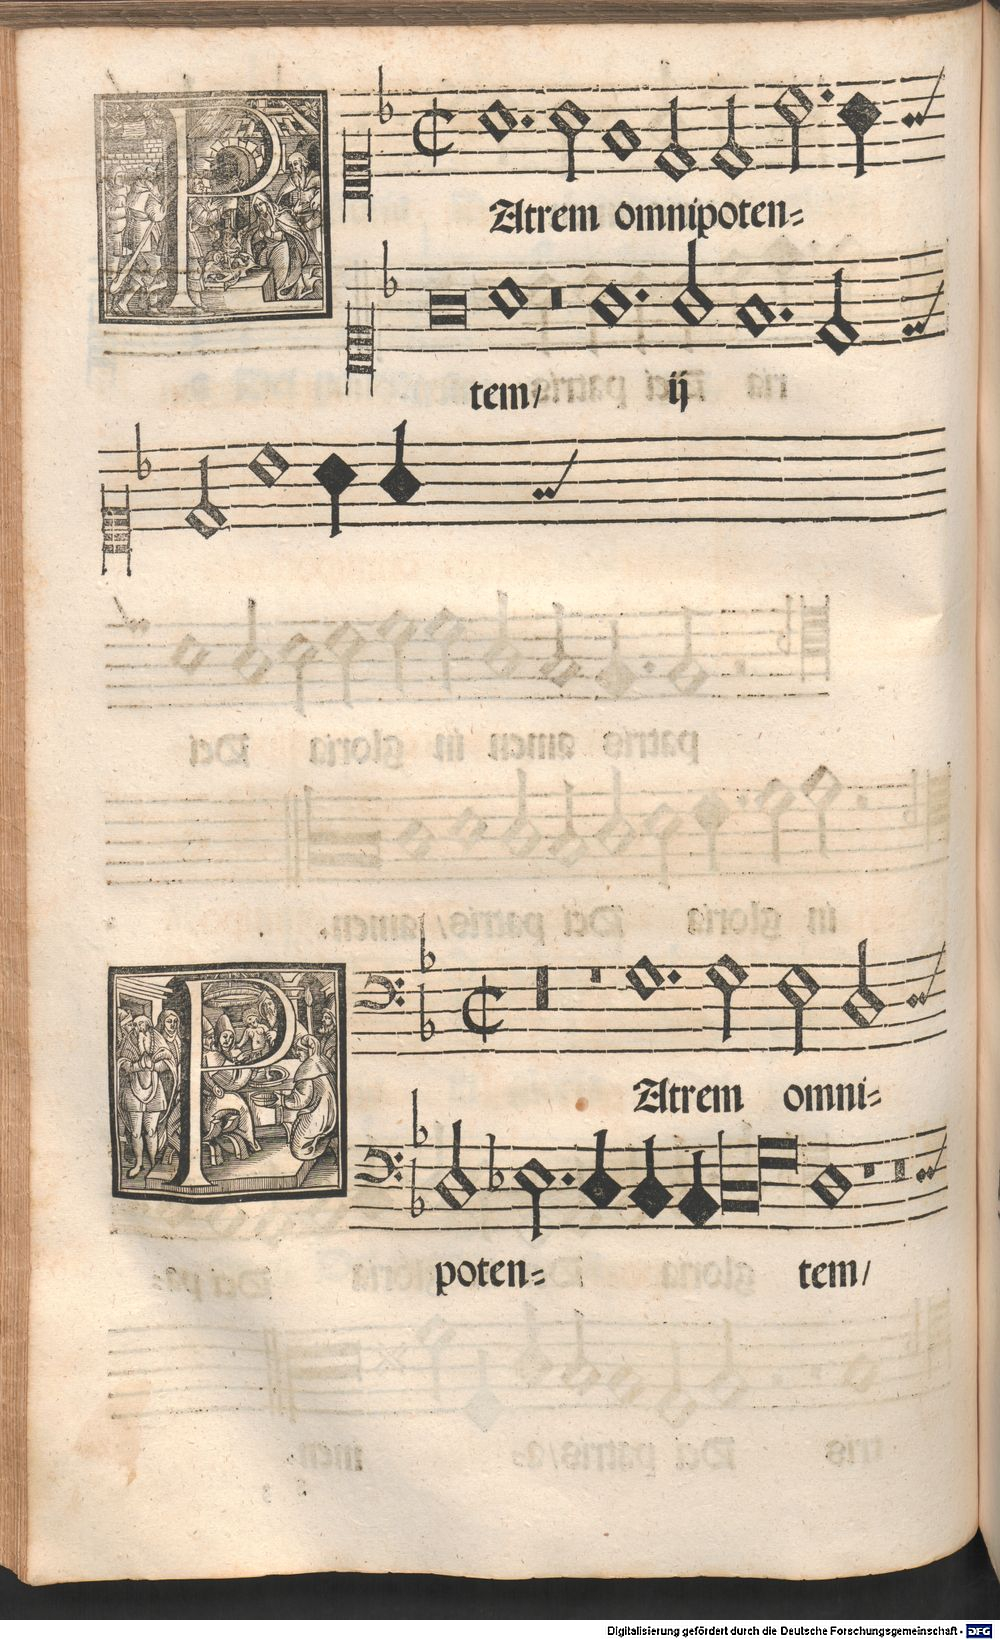 PAtrem omnipoten=
tem/ ij
PAtrem omni=
poten= tem/
Digitalisierung gefördert durch die Deutsche Forschungsgemeinschaft - DFG